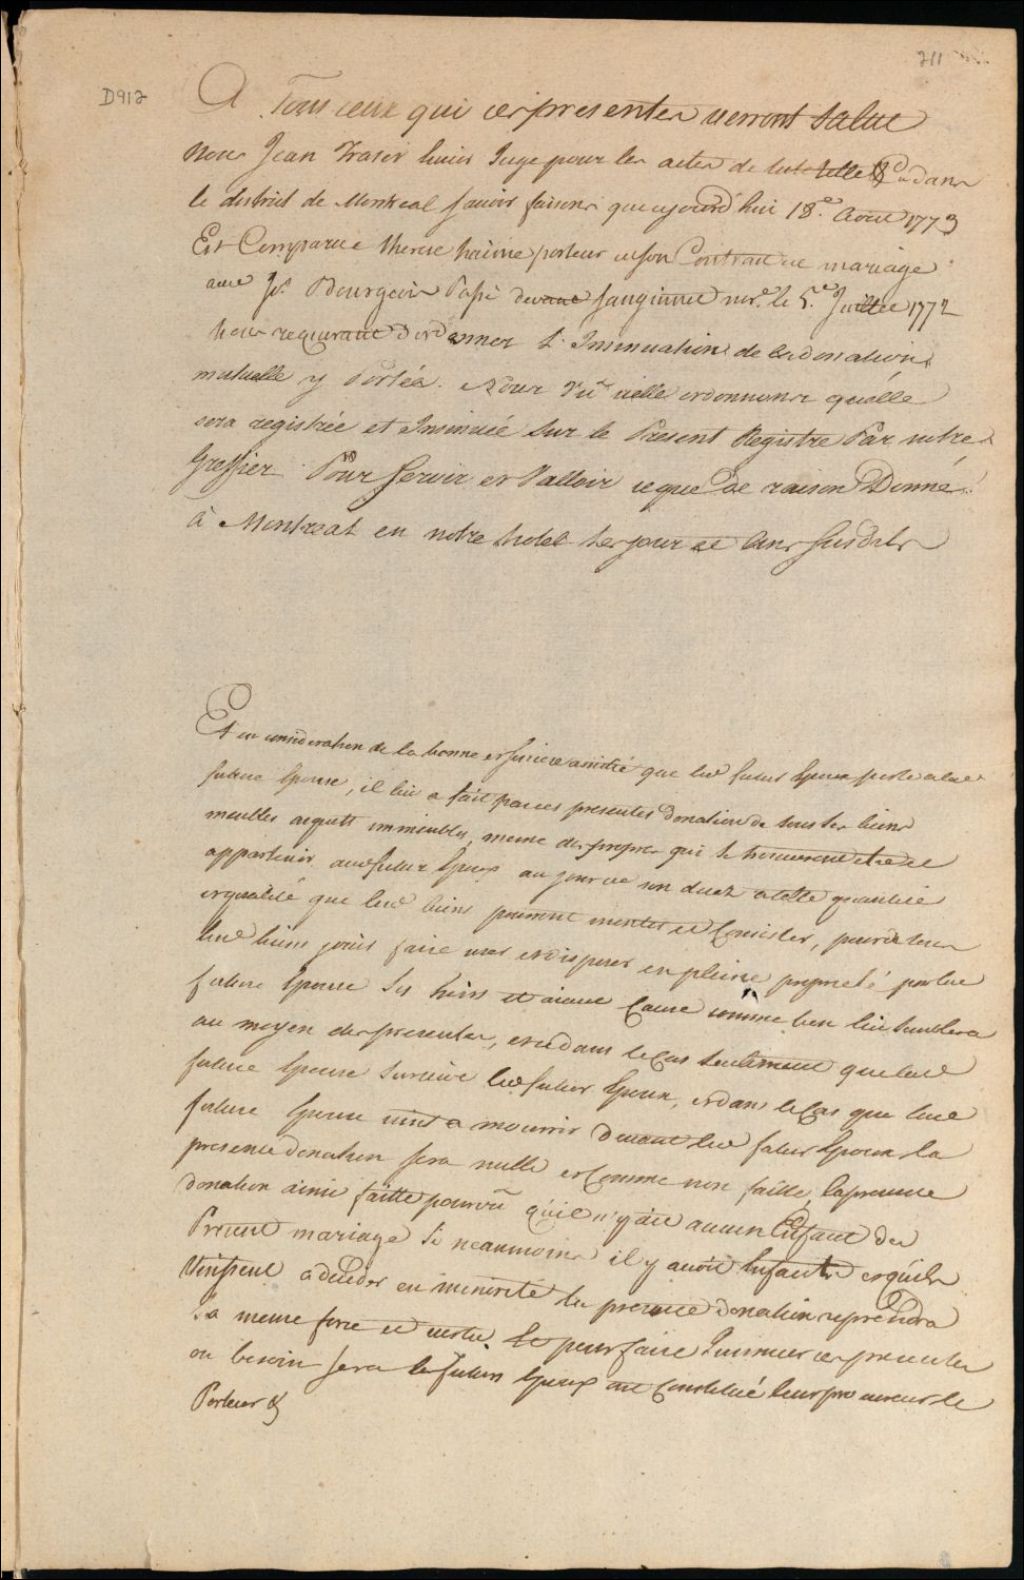 211
D912
A Tous ceux qui ces presentes verront Salut
Nous Jean Fraser Ecuier Juge pour les actes de tutelle &c dans
le district de Montreal savoir faisons que ajourd'hui 18.e Aout 1773
Est Comparue therese haime porteur de son Contract de mariage
avec Js. Bourgeois Passé devant Sanguinet nore. le 5.e Juillet 1772
Nous requerant d'ordonner L'Insinuation de la donation
mutuelle y Portéé. Nous Vu icelle ordonnons quélle
sera registrée et Insinuée Sur le Present Registre Par notre
Greffier Pour Servir et Valloir ce que de raison Donné
à Montreal en notre hotel les jour et an susdits
Et en consideration de la bonne et sincere amitié que led futur Epoux porte a lad
future Epouse, il lui a fait par ces presentes donation de tous les biens
meubles acquets immeubles, meme des propres qui se trouveront etre et
appartenir aud futur Epoux au jour de son decez a telle quantité
et qualité que lesd biens pouront monter et Consister, pour de tous
lesd biens jouir faire user et disposer en pleine propreté par lad
future Epouse Ses hoirs et aiant Cause comme bon lui semblera
au moyen des presentes, et ce dans le Cas seulement que lad
future Epouse survive led futur Epoux, et dans le Cas que lad
future Epouse vint a mourrir devant led futur Epoux la
presente donation sera nulle et Comme non faitte, la presente
donation ainsi faitte pourvû qu'il n'y ait aucun Enfant du
Present mariage Si neanmoins il y avoit Enfants et qu'ils
Vinssent a deceder en minorité la presente donation reprendra
sa meme force et vertu. Et pour faire Insinuer ces presentes
ou besoin sera les futurs Epoux ont Constitué leur procureur le
Porteur &